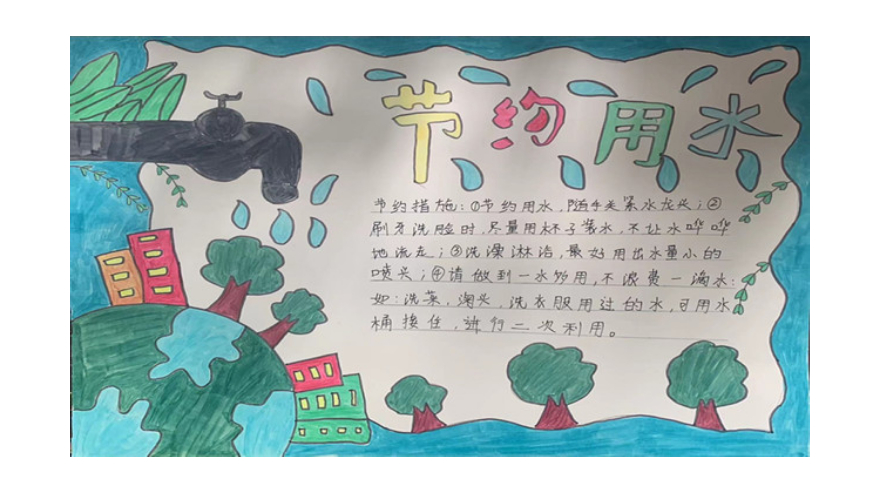 节约用水
节约措施:①节约用水,随手关紧水龙头;②
刷牙洗脸时,尽量用杯子装水,不让水哗哗
地流走;③洗澡淋浴,最好用出水量小的
喷头;④请做到一水多用,不浪费一滴水:
如:洗菜,淘米,洗衣服用过的水,可用水
桶接住,进行二次利用。